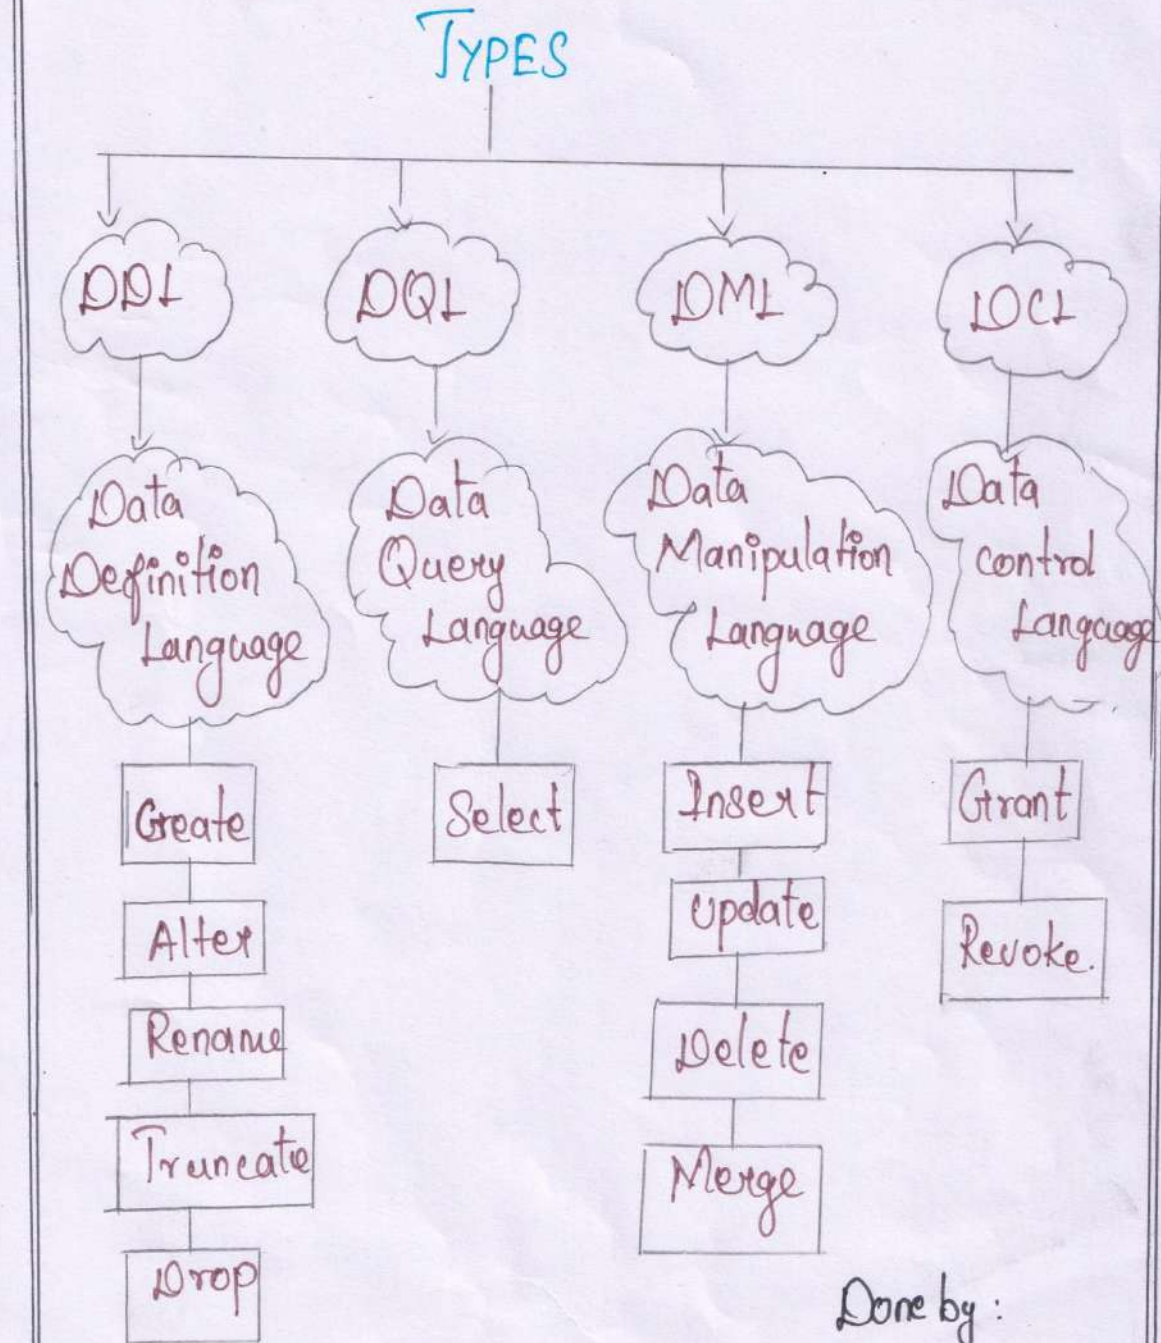 TYPES
DDL
DQL
DML
DCL
Data
Definition
Language
Data
Query
Language
Data
Manipulation
Language
Data
control
Language
Create
Alter
Rename
Truncate
Drop
Select
Insert
Update
Delete
Merge
Grant
Revoke.
Done by :